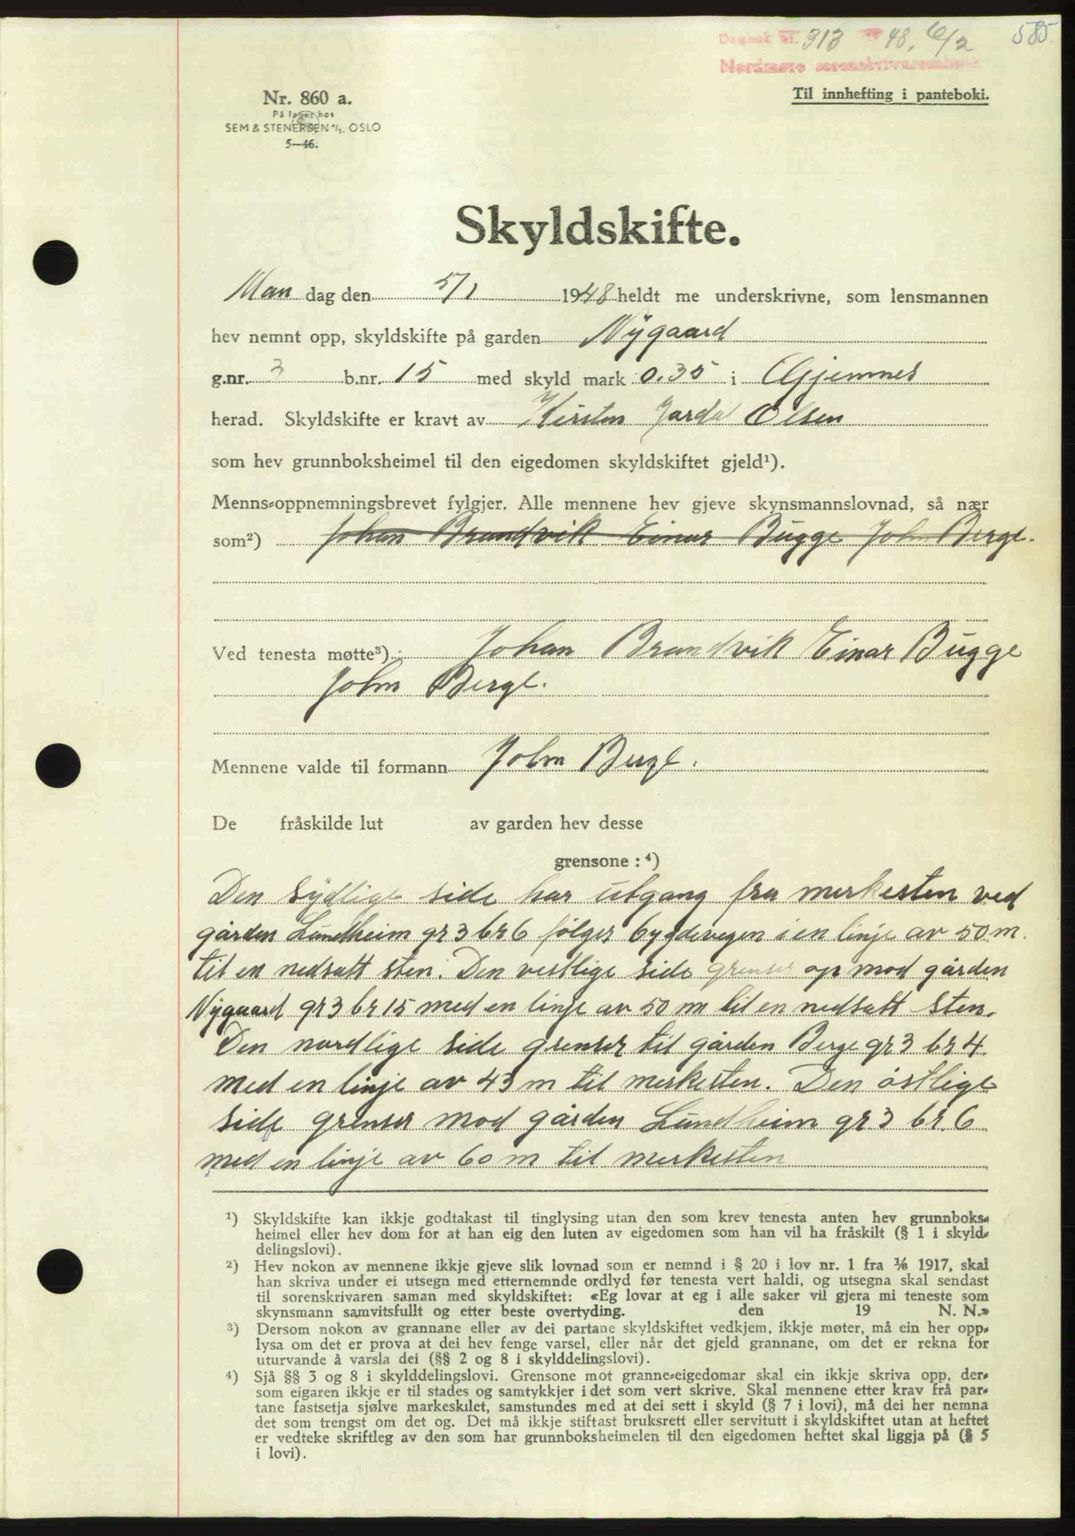 Dagbok nr. 313 19 48, 6/2 585
Nordmøre sorenskriverembete
Nr. 860 a.
Til innhefting i panteboki.
På lager hos
SEM & STENERSEN A/S. OSLO
5—46.
Skyldskifte.
Man dag den 5/1 1948 heldt me underskrivne, som lensmannen
hev nemnt opp, skyldskifte på garden Nygaard
g.nr. 3 b.nr. 15 med skyld mark 0.35 i Gjemnes
herad. Skyldskifte er kravt av Kirsten Jardal Olsen
som hev grunnboksheimel til den eigedomen skyldskiftet gjeld¹).
Menns-oppnemningsbrevet fylgjer. Alle mennene hev gjeve skynsmannslovnad, så nær
som²) Johan Brandvik Einar Bugge John Berge.
Ved tenesta møtte³): Johan Brandvik Einar Bugge
John Berge.
Mennene valde til formann John Berge.
De fråskilde lut av garden hev desse
grensone : ⁴)
Den sydlige side har utgang fra merkesten ved
gården Lundheim gr 3 br 6 følger bygdevegen i en linje av 50 m.
til en nedsatt sten. Den vestlige side grenser op mod gården
Nygaard gr 3 br 15 med en linje av 50 m til en nedsatt sten.
Den nordlige side grenser til gården Berge gr 3 br 4
med en linje av 43 m til merkesten. Den østlige
side grenser mod gården Lundheim gr 3 br. 6
med en linje av 60 m til merkesten
¹) Skyldskifte kan ikkje godtakast til tinglysing utan den som krev tenesta anten hev grunnboks-
heimel eller hev dom for at han eig den luten av eigedomen som han vil ha fråskilt (§ 1 i skyld-
delingslovi).
²) Hev nokon av mennene ikkje gjeve slik lovnad som er nemnd i § 20 i lov nr. 1 fra 1/6 1917, skal
han skriva under ei utsegn med etternemnde ordlyd før tenesta vert haldi, og utsegna skal sendast
til sorenskrivaren saman med skyldskiftet: «Eg lovar at eg i alle saker vil gjera mi teneste som
skynsmann samvitsfullt og etter beste overtyding. den 19 N. N.»
³) Dersom nokon av grannane eller av dei partane skyldskiftet vedkjem, ikkje møter, må ein her opp-
lysa om det er prova at dei hev fenge varsel, eller når det gjeld grannane, om det er rekna for
uturvande å varsla dei (§§ 2 og 8 i skylddelingslovi).
⁴) Sjå §§ 3 og 8 i skylddelingslovi. Grensone mot granne-eigedomar skal ein ikkje skriva opp, der-
som eigaren ikkje er til stades og samtykkjer i det som vert skrive. Skal mennene etter krav frå par-
tane fastsetja sjølve markeskilet, samstundes med at dei sett i skyld (§ 7 i lovi), må dei her nemna
det som trengst om det og. Det må ikkje stiftast bruksrett eller servitutt i skyldskiftet utan at heftet
er vedteke skriftleg av den som har grunnboksheimelen til den eigedomen heftet skal liggja på (§ 5
i lovi).